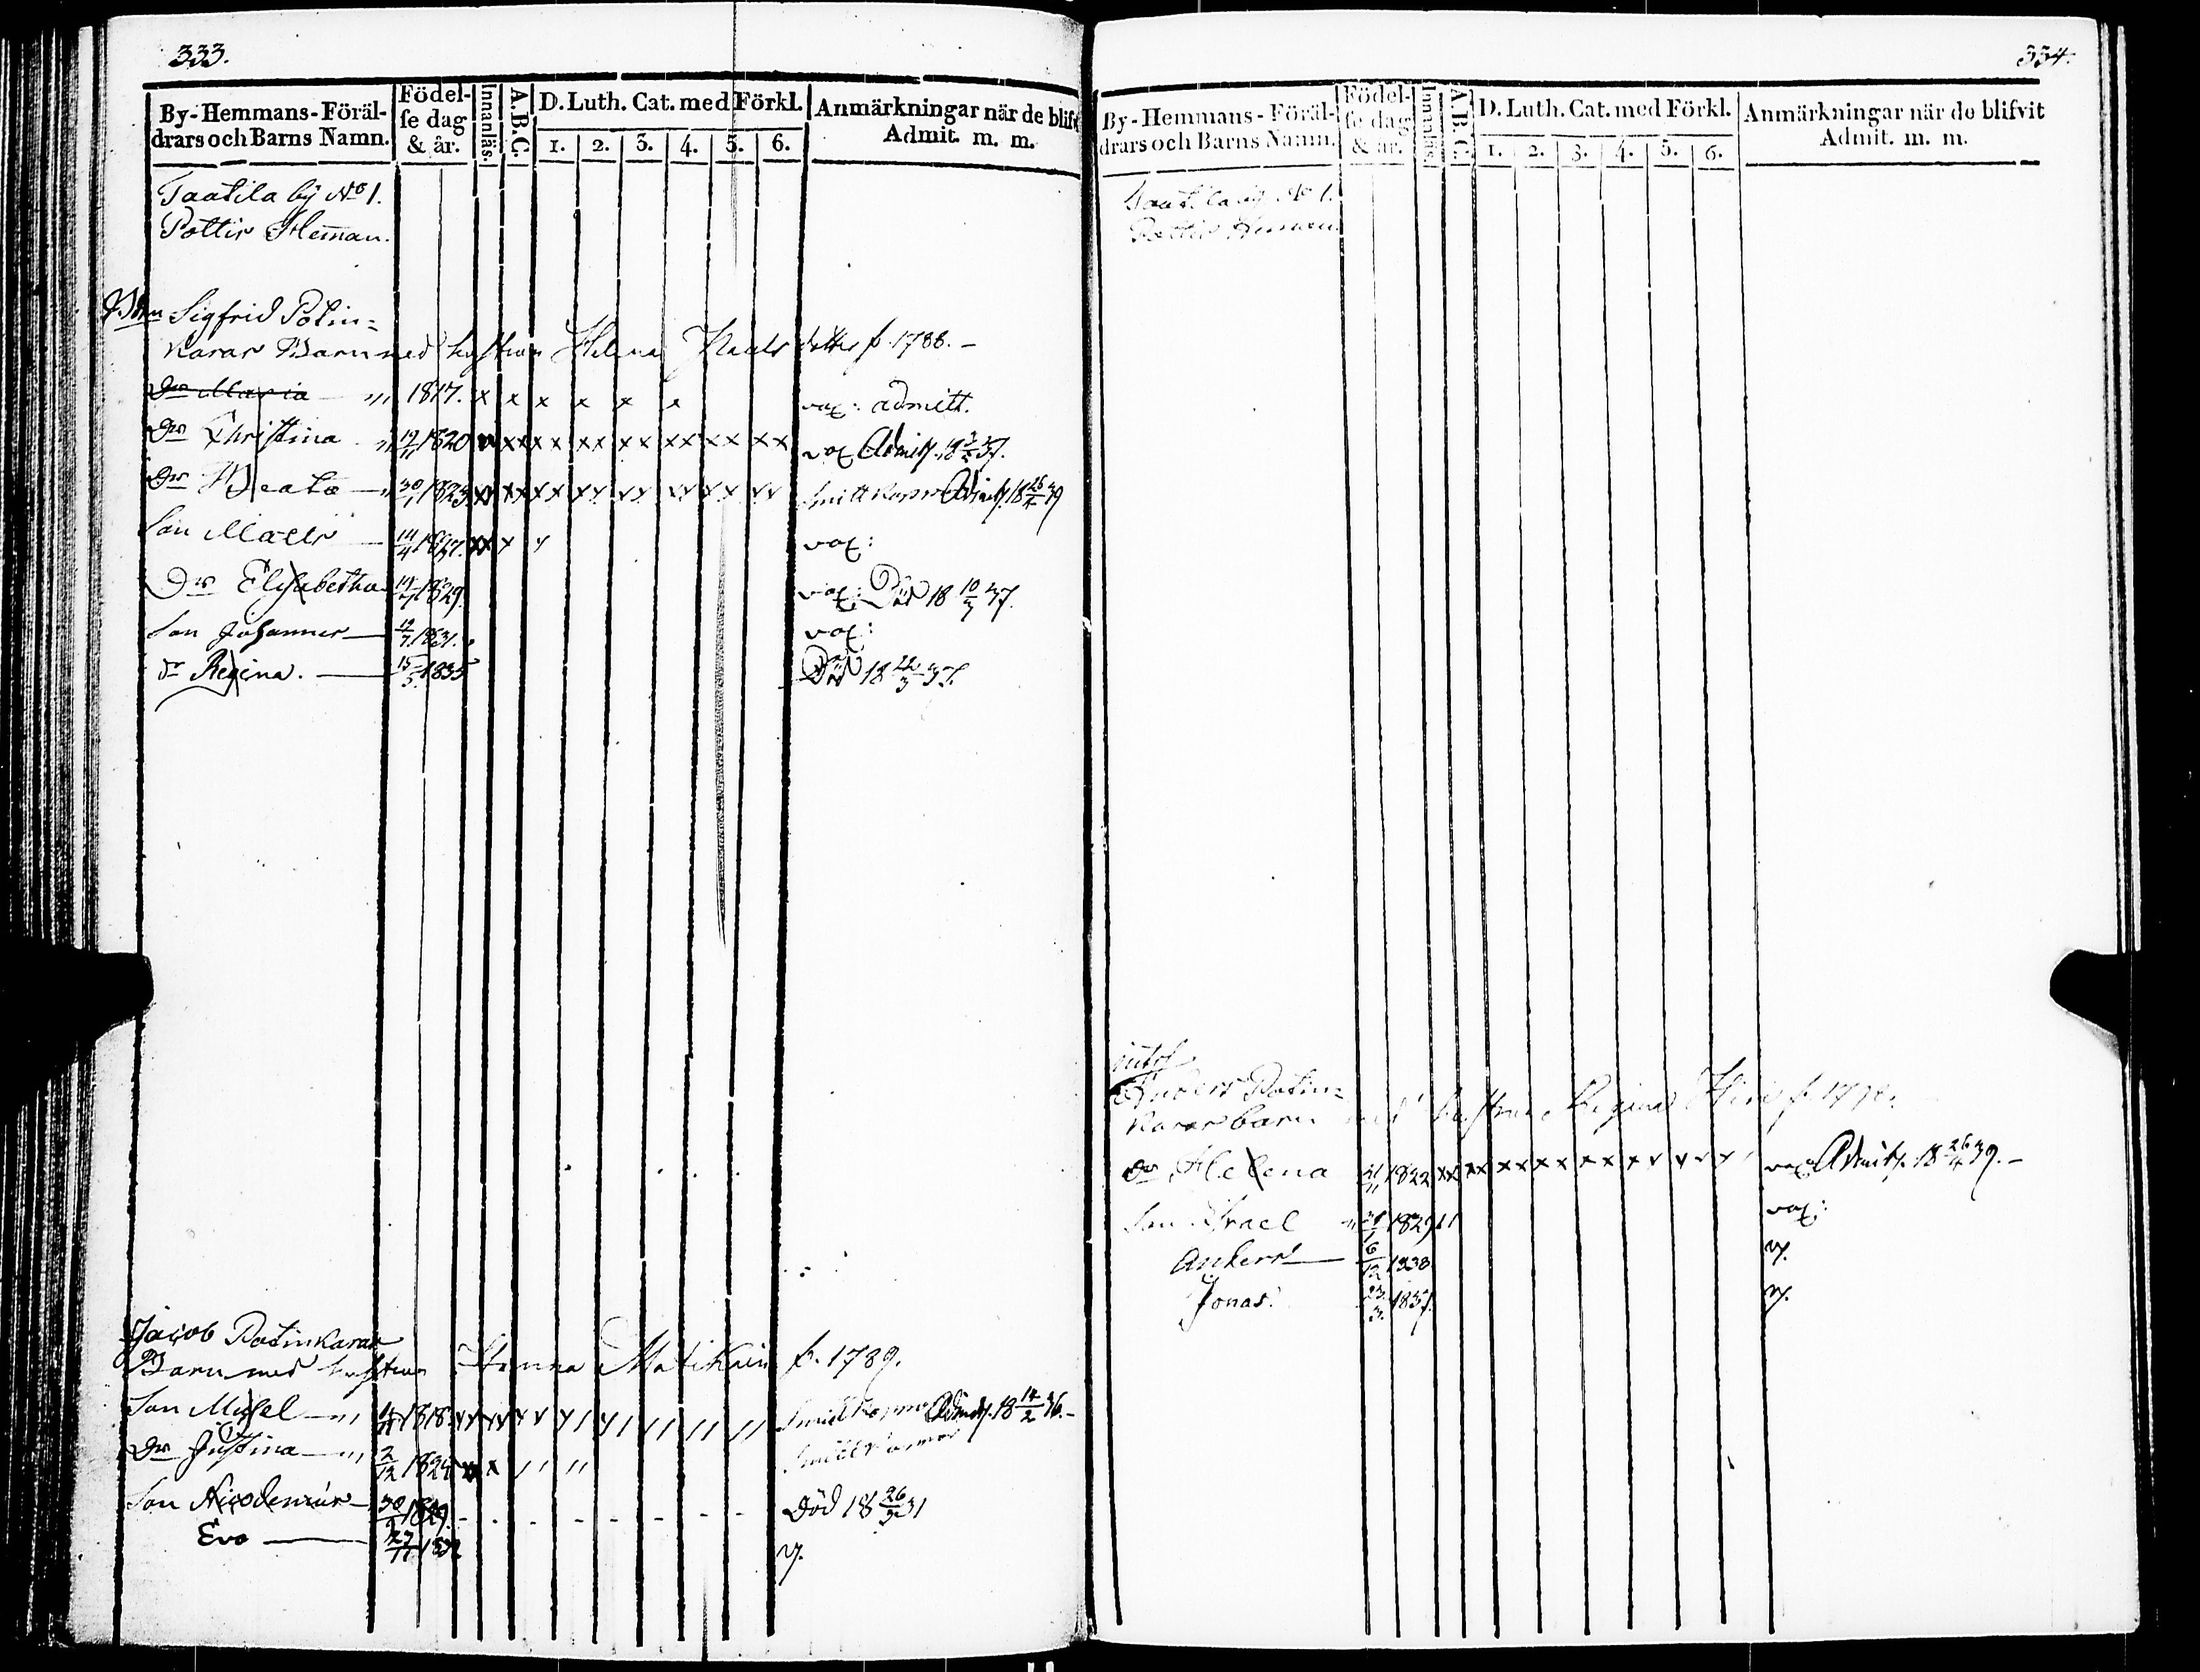 333.
By-Hemmans-Föräl-
drars och Barns Namn.
Födel-
se dag
& år.
Innanläs.
A.B.C.
D. Luth. Cat. med Förkl.
1. 2. 3. 4. 5. 6.
Anmärkningar när de blifvit
Admit. m. m.
Taatila by No 1.
Pottir Hemman.
Sigfrid Potin=
karar Barn med hustrun Helena Maalr dotter f. 1788. –
Dr Maria 1817. x x x x x x vax: admitt.
Dr Christina 12/11 1820 xx xx xx xx xx xx xx xx vax Admitt. 18 3/2 37.
Dr Beata 30/1 1823. xx xx xx xx xx xx xx xx Smittkopor Admitt. 18 26/4 39
Son Matts 14/4 1827. xx x x vax:
Dr Elisabetha 14/7 1829. vax: Död 18 10/3 37.
Son Johannes 12/7 1831. vax:
dr Regina. 15/5 1835 Död 18 22/3 37.
Jacob Potinkarar
Barn med hustrun Hanna Matikain f. 1789.
Son Michel 1818. Smittkopor Admitt. 18 14/2 36. –
Dr Justina 2/12 1824 Smittkopor
Son Nicodemus 30/9 1829. Död 18 26/3 31
Eva 27/11 1832 v.
334.
By-Hemmans-Föräl-
drars och Barns Namn.
Födel-
se dag
& år.
Innanläs.
A.B.C.
D. Luth. Cat. med Förkl.
1. 2. 3. 4. 5. 6.
Anmärkningar när de blifvit
Admit. m. m.
Taatila by No 1.
Pottir Hemman
Anders Potin=
karar barn med hustrun Regina
Dr Helena 21/11 1822 xx xx xx xx vax Admitt. 18 26/4 39. –
Son Israel 1829 vax:
Anders 6/12 1833 v.
Jonas. 23/3 1837. v.